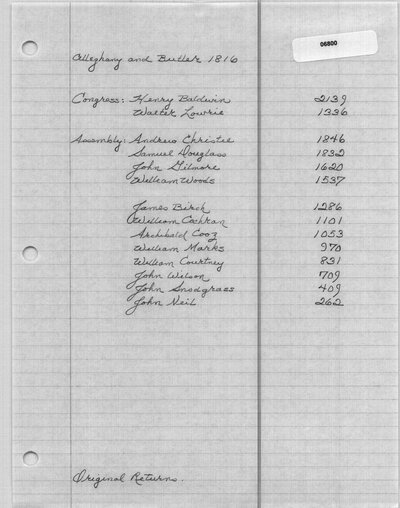 06800
Alleghany and Butler 1816
Congress: Henry Baldwin 2139
Walter Lowrie 1336
Assembly: Andrew Christie 1846
Samuel Douglass 1832
John Gilmore 1620
William Woods 1537
James Birch 1286
William Cochran 1101
Archibald Cooz 1053
William Marks 970
William Courtney 831
John Wilson 709
John Snodgrass 409
John Neil 262
Original Returns.